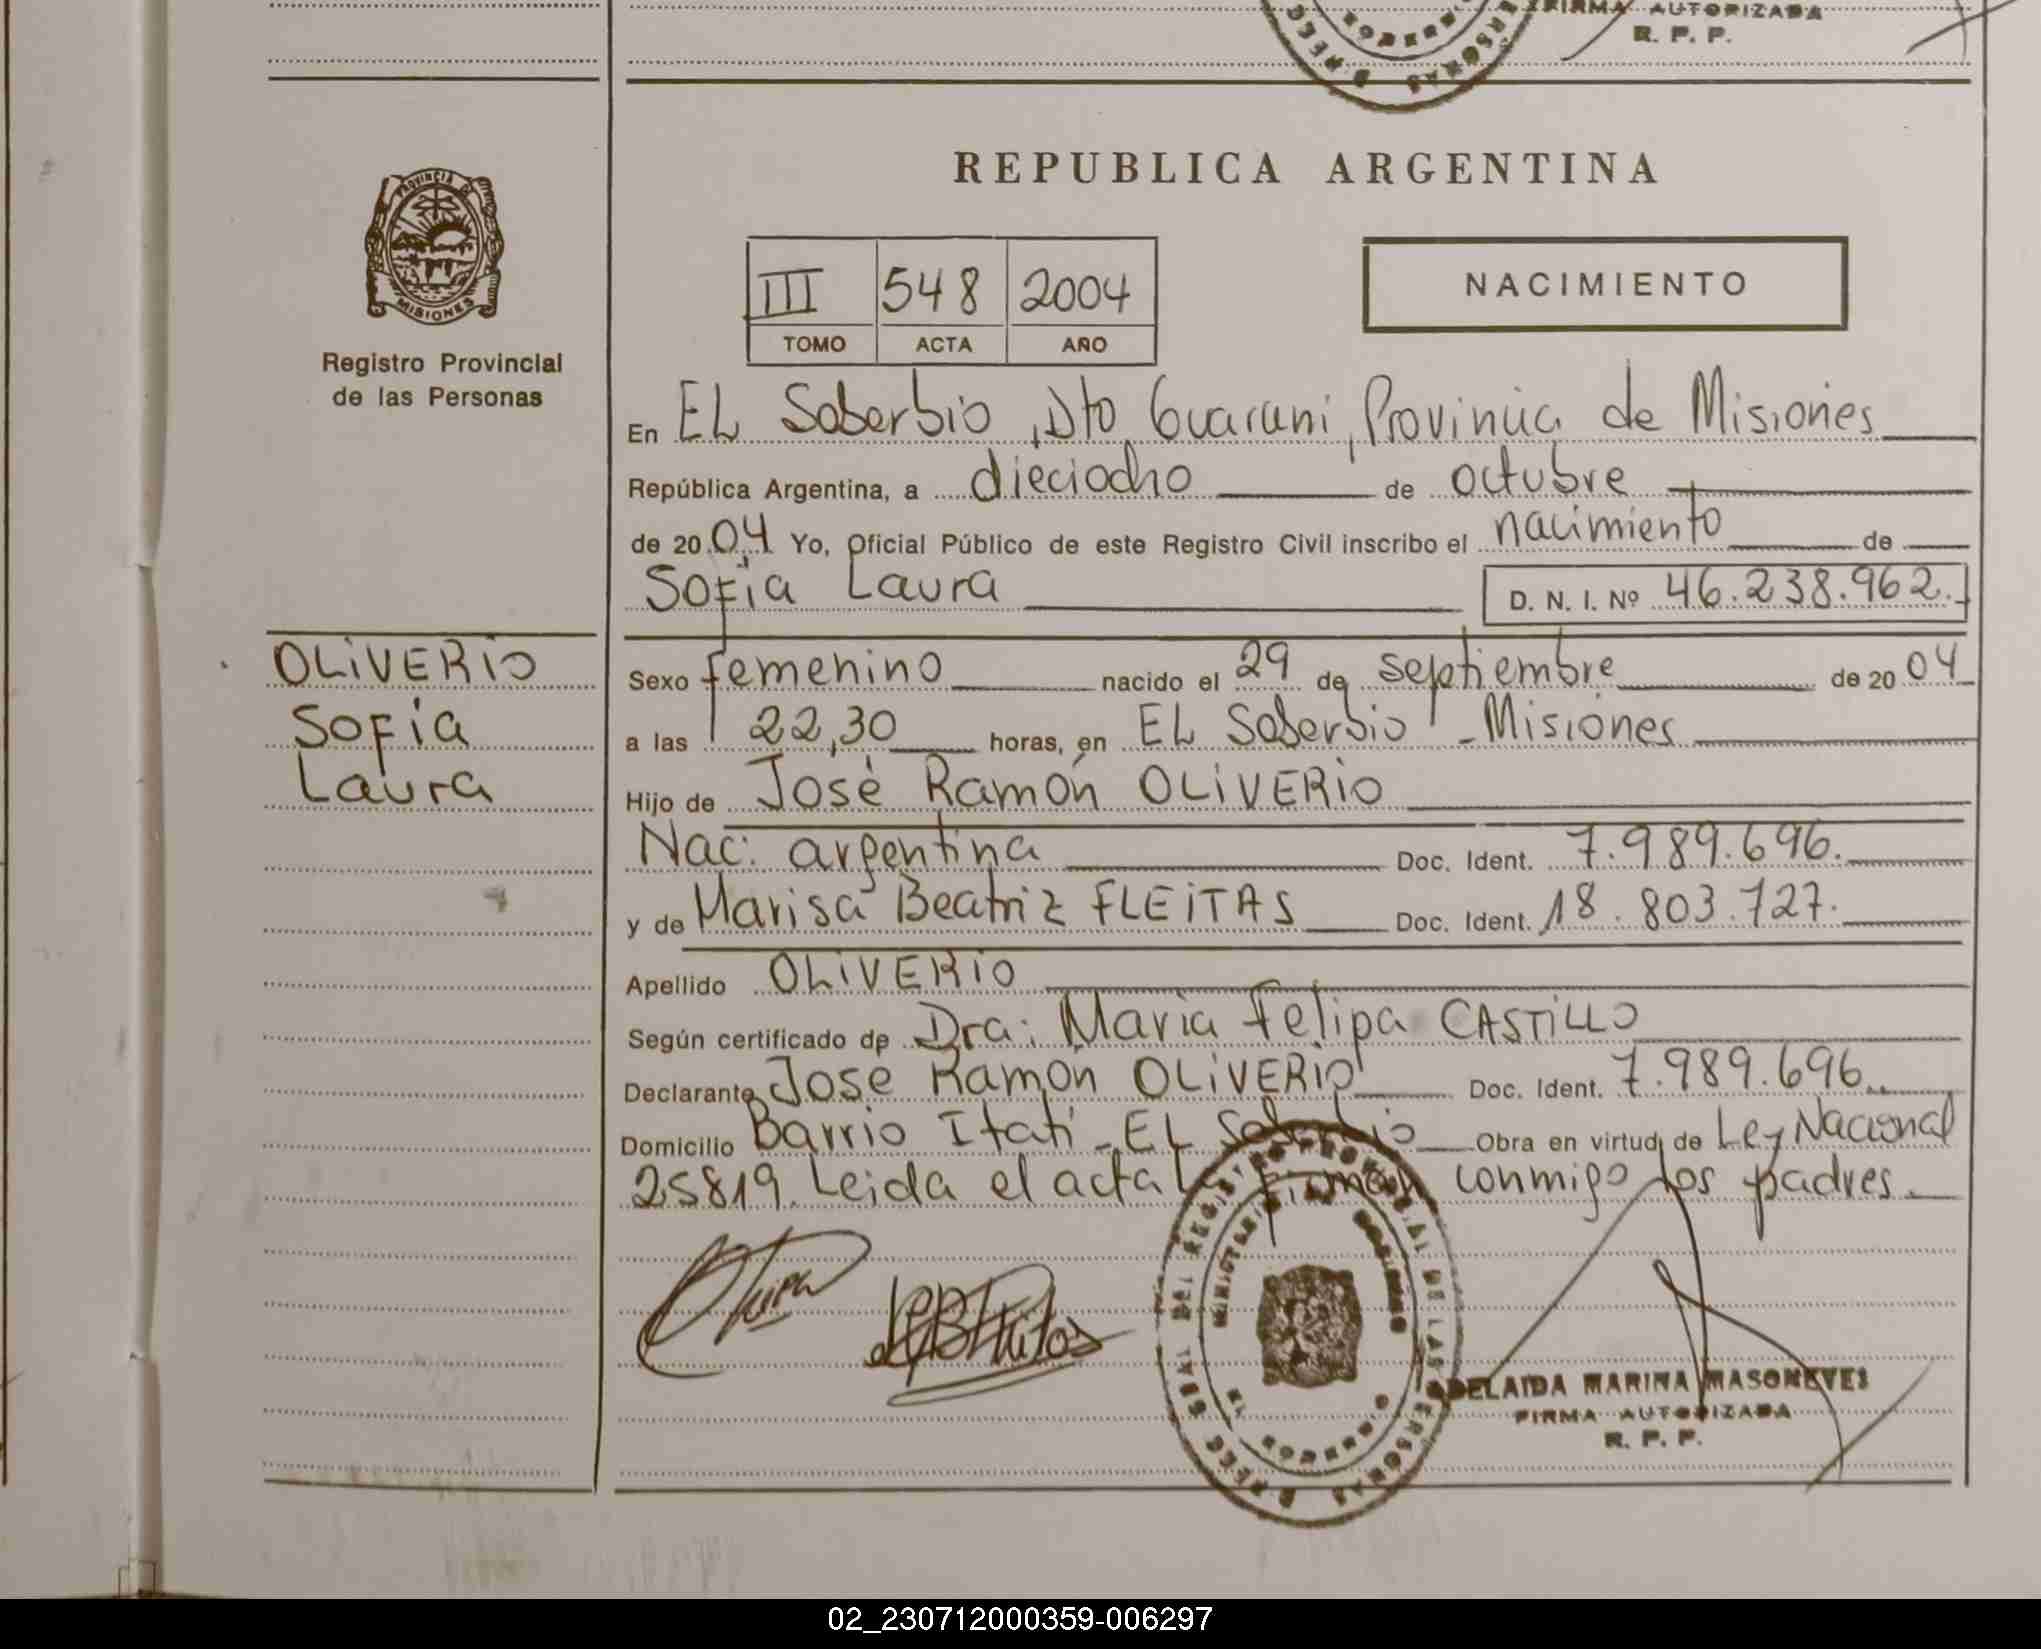 FIRMA AUTORIZADA
R. P. P.
PROVINCIA DE
MISIONES
Registro Provincial
de las Personas
OLIVERIO
Sofía
Laura
REPUBLICA ARGENTINA
III 548 2004
TOMO ACTA AÑO
NACIMIENTO
En EL Soberbio, Dto Guarani, Provincia de Misiones
República Argentina, a dieciocho de octubre
de 2004 Yo, Oficial Público de este Registro Civil inscribo el nacimiento de
Sofia Laura D. N. I. Nº 46.238.962.
Sexo femenino nacido el 29 de septiembre de 2004
a las 22,30 horas, en EL Soberbio - Misiones
Hijo de José Ramón OLIVERIO
Nac: argentina Doc. Ident. 7.989.696.
y de Marisa Beatriz FLEITAS Doc. Ident. 18.803.727.
Apellido OLIVERIO
Según certificado de Dra: Maria Felipa CASTILLO
Declarante Jose Ramón OLIVERIO Doc. Ident. 7.989.696.
Domicilio Barrio Itatí - EL Soberbio Obra en virtud de Ley Nacional
25819. Leida el acta L firman conmigo los padres.
REGISTRO PROVINCIAL DE LAS PERSONAS
ADELAIDA MARINA MASONEVES
FIRMA AUTORIZADA
R. P. P.
02_230712000359-006297